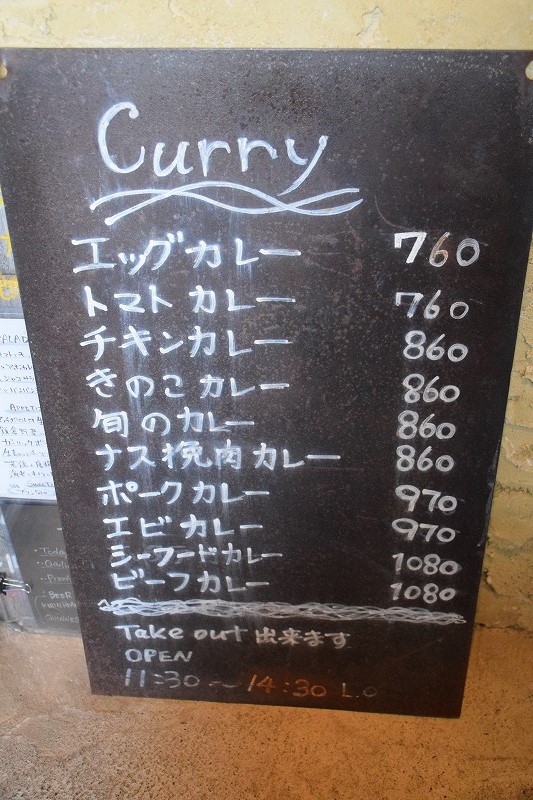 Curry
エッグカレー 760
トマトカレー 760
チキンカレー 860
きのこカレー 860
旬のカレー 860
ナス挽肉カレー 860
ポークカレー 970
エビカレー 970
シーフードカレー 1080
ビーフカレー 1080
Take out 出来ます
OPEN
11:30〜14:30 L.O